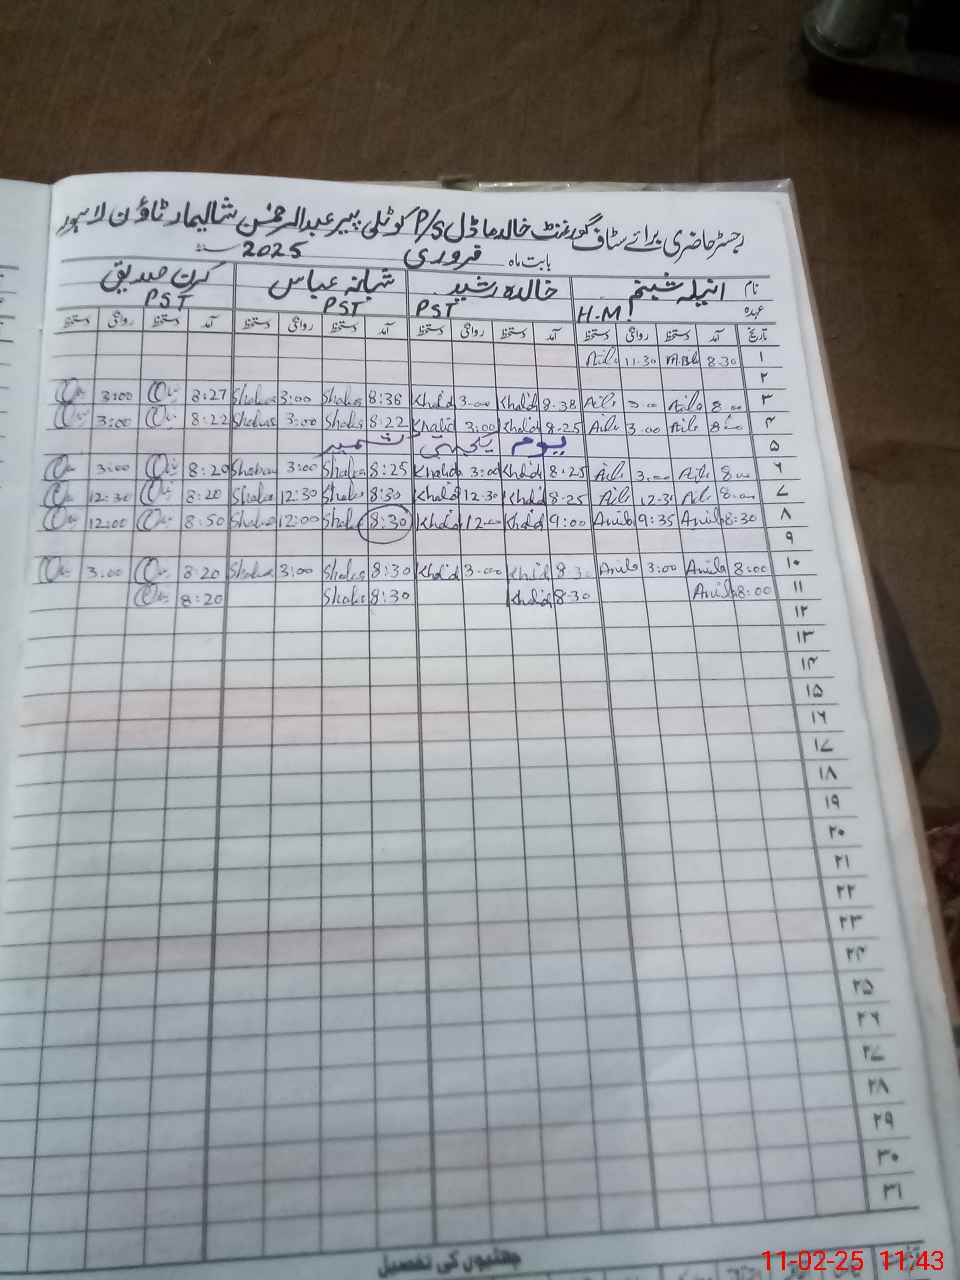 رجسٹر حاضری برائے سٹاف گورنمنٹ خالد ماڈل P/S کوٹلی پیر عبدالرحمٰن شالیمار ٹاؤن لاہور
بابت ماہ فروری سنہ 2025
نام انیلہ شبنم خالدہ رشید شبانہ عباس کرن صدیق
عہدہ H.M PST PST PST
تاریخ آمد دستخط روانگی دستخط آمد دستخط روانگی دستخط آمد دستخط روانگی دستخط آمد دستخط روانگی دستخط
۱ 8.30 11.30
۲
۳ 8.00 3.00 8.38 Khalid 3.00 Khalid 8:36 Shaba 3:00 Shaba 8:27 3:00
۴ 3.00 8.25 Khalid 3:00 Khalid 8.22 Shaba 3:00 Shaba 8:22 3:00
۵ یوم یکجہتی کشمیر
۶ 8.00 3.00 8:25 Khalid 3:00 Khalid 8:25 Shaba 3:00 Shaba 8:20 3:00
۷ 8.00 12.30 8.25 Khalid 12.30 Khalid 8:30 Shaba 12:30 Shaba 8:20 12:30
۸ 8:30 Anila 9:35 Anila 9:00 Khalid 12.00 Khalid 8:30 Shaba 12:00 Shaba 8:50 12:00
۹
۱۰ 8:00 Anila 3:00 Anila 8.30 Khalid 3.00 Khalid 8:30 Shaba 3:00 Shaba 8:20 3.00
۱۱ 8:00 Anila 8.30 Khalid 8:30 Shaba 8:20
۱۲
۱۳
۱۴
۱۵
۱۶
۱۷
۱۸
۱۹
۲۰
۲۱
۲۲
۲۳
۲۴
۲۵
۲۶
۲۷
۲۸
۲۹
۳۰
۳۱
چھٹیوں کی تفصیل
11-02-25 11:43